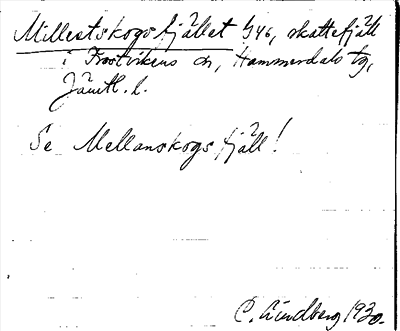 Millestskogsfjället G46, skattefjäll
i Frostvikens sn, Hammerdals tg,
Jämtl. l.
Se Mellanskogsfjäll!
C. Lindberg 1930.